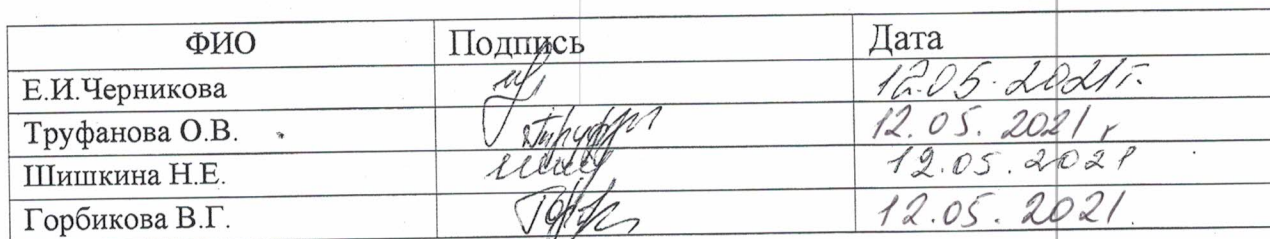 ФИО Подпись Дата
Е.И.Черникова 12.05.2021г.
Труфанова О.В. 12.05.2021г
Шишкина Н.Е. 12.05.2021
Горбикова В.Г. 12.05.2021.